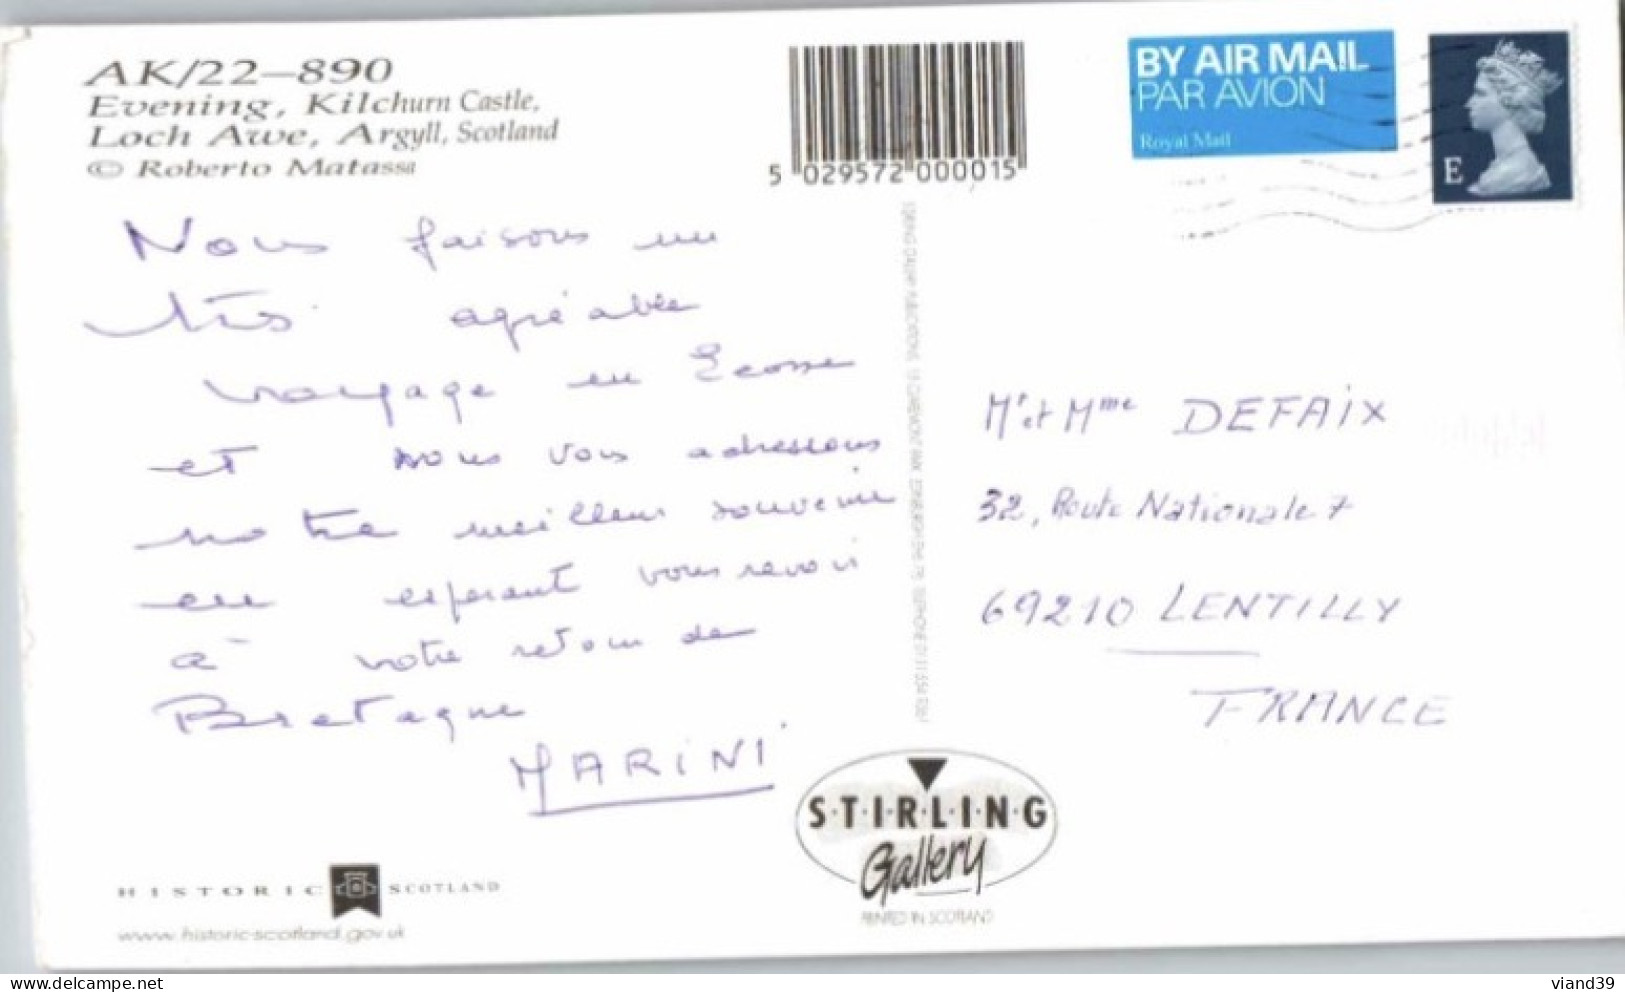 AK/22–890
Evening, Kilchurn Castle,
Loch Awe, Argyll, Scotland
© Roberto Matassa
5 029572 000015
BY AIR MAIL
PAR AVION
Royal Mail
E
Nous faisons un
très agréable
voyage en Ecosse
et nous vous adressons
notre meilleur souvenir
en espérant vous revoir
à votre retour de
Bretagne
MARINI
Mr et Mme DEFAIX
32, Route Nationale 7
69210 LENTILLY
FRANCE
S·T·I·R·L·I·N·G
Gallery
PRINTED IN SCOTLAND
HISTORIC SCOTLAND
www.historic-scotland.gov.uk
viand39